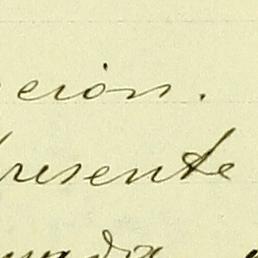 ción.
presente